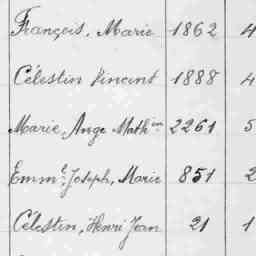 François, Marie 1862 4
Célestin Vincent 1888 4
Marie, Ange Mathin 2261 5
Emml, Joseph, Marie 851 2
Célestin, Henri Jean 21 1